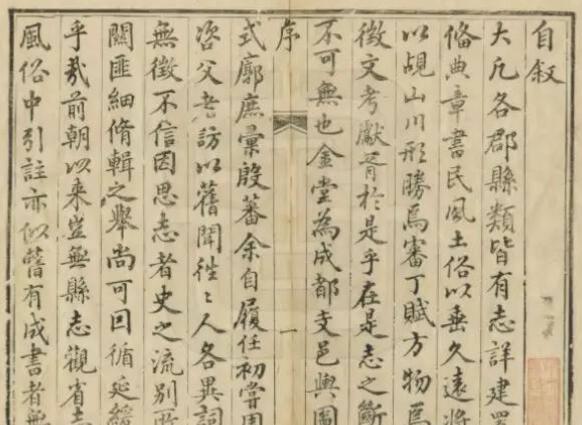 自叙
大凡各郡縣類皆有志詳建置
俻典章書民風土俗以垂久遠將
以覘山川形勝焉審丁賦方物焉
徵文考獻胥於是乎在是志之斷
不可無也金堂為成都支邑輿圖
序 一
式廓庶彙殷蕃余自履任初嘗周
咨父老訪以舊聞徃〻人各異詞
無徵不信因思志者史之流別所
關匪細脩輯之舉尚可因循延緩
乎哉前朝以來豈無縣志觀省志
風俗中引註亦似舊有成書者無